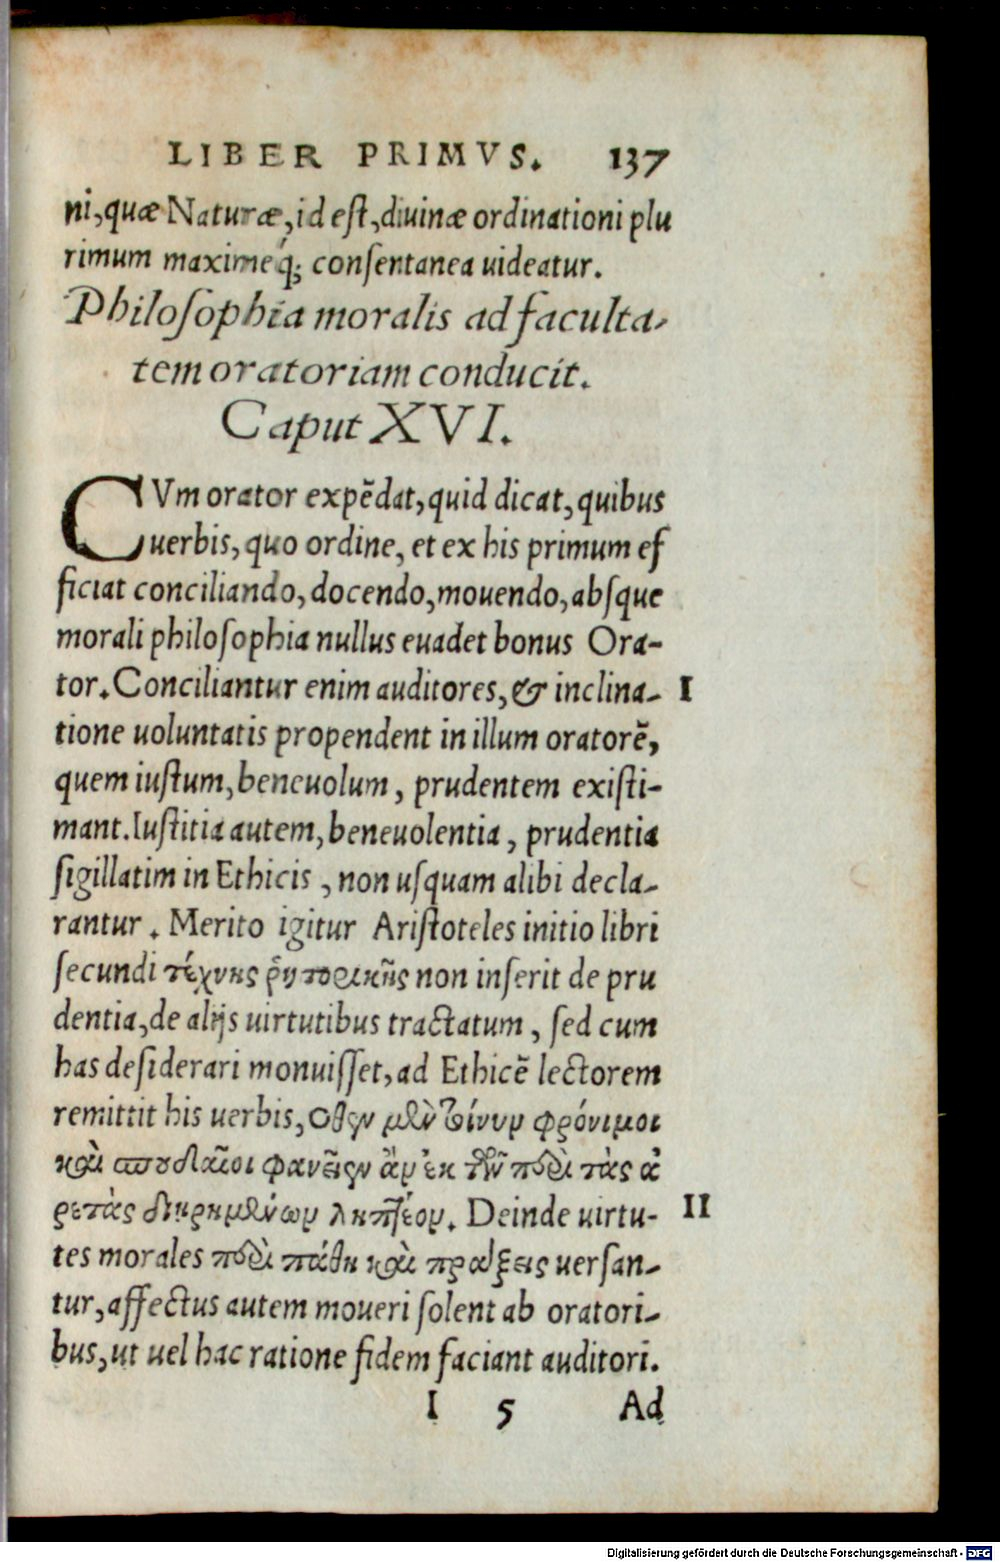 LIBER PRIMVS. 137
ni, quæ Naturæ, id eſt, diuinæ ordinationi plu
rimum maximeq́; conſentanea uideatur.
Philoſophia moralis ad faculta-
tem oratoriam conducit.
Caput XVI.
CVm orator expēdat, quid dicat, quibus
uerbis, quo ordine, et ex his primum ef
ficiat conciliando, docendo, mouendo, abſque
morali philoſophia nullus euadet bonus Ora-
tor. Conciliantur enim auditores, & inclina- I
tione uoluntatis propendent in illum oratorē,
quem iuſtum, beneuolum, prudentem exiſti-
mant. Iuſtitia autem, beneuolentia, prudentia
ſigillatim in Ethicis, non uſquam alibi decla-
rantur. Merito igitur Ariſtoteles initio libri
ſecundi τέχνης ῥητορικῆς non inſerit de pru
dentia, de alijs uirtutibus tractatum, ſed cum
has deſiderari monuiſſet, ad Ethicē lectorem
remittit his uerbis, Οθεν μὲν τοίνυν φρόνιμοι
καὶ σπουδαῖοι φανεῖεν ἂν ἐκ τῶν περὶ τὰς ἀ
ρετὰς διῃρημένων ληπτέον. Deinde uirtu- II
tes morales περὶ πάθη καὶ πράξεις uerſan-
tur, affectus autem moueri ſolent ab oratori-
bus, ut uel hac ratione fidem faciant auditori.
I 5 Ad
Digitalisierung gefördert durch die Deutsche Forschungsgemeinschaft - DFG